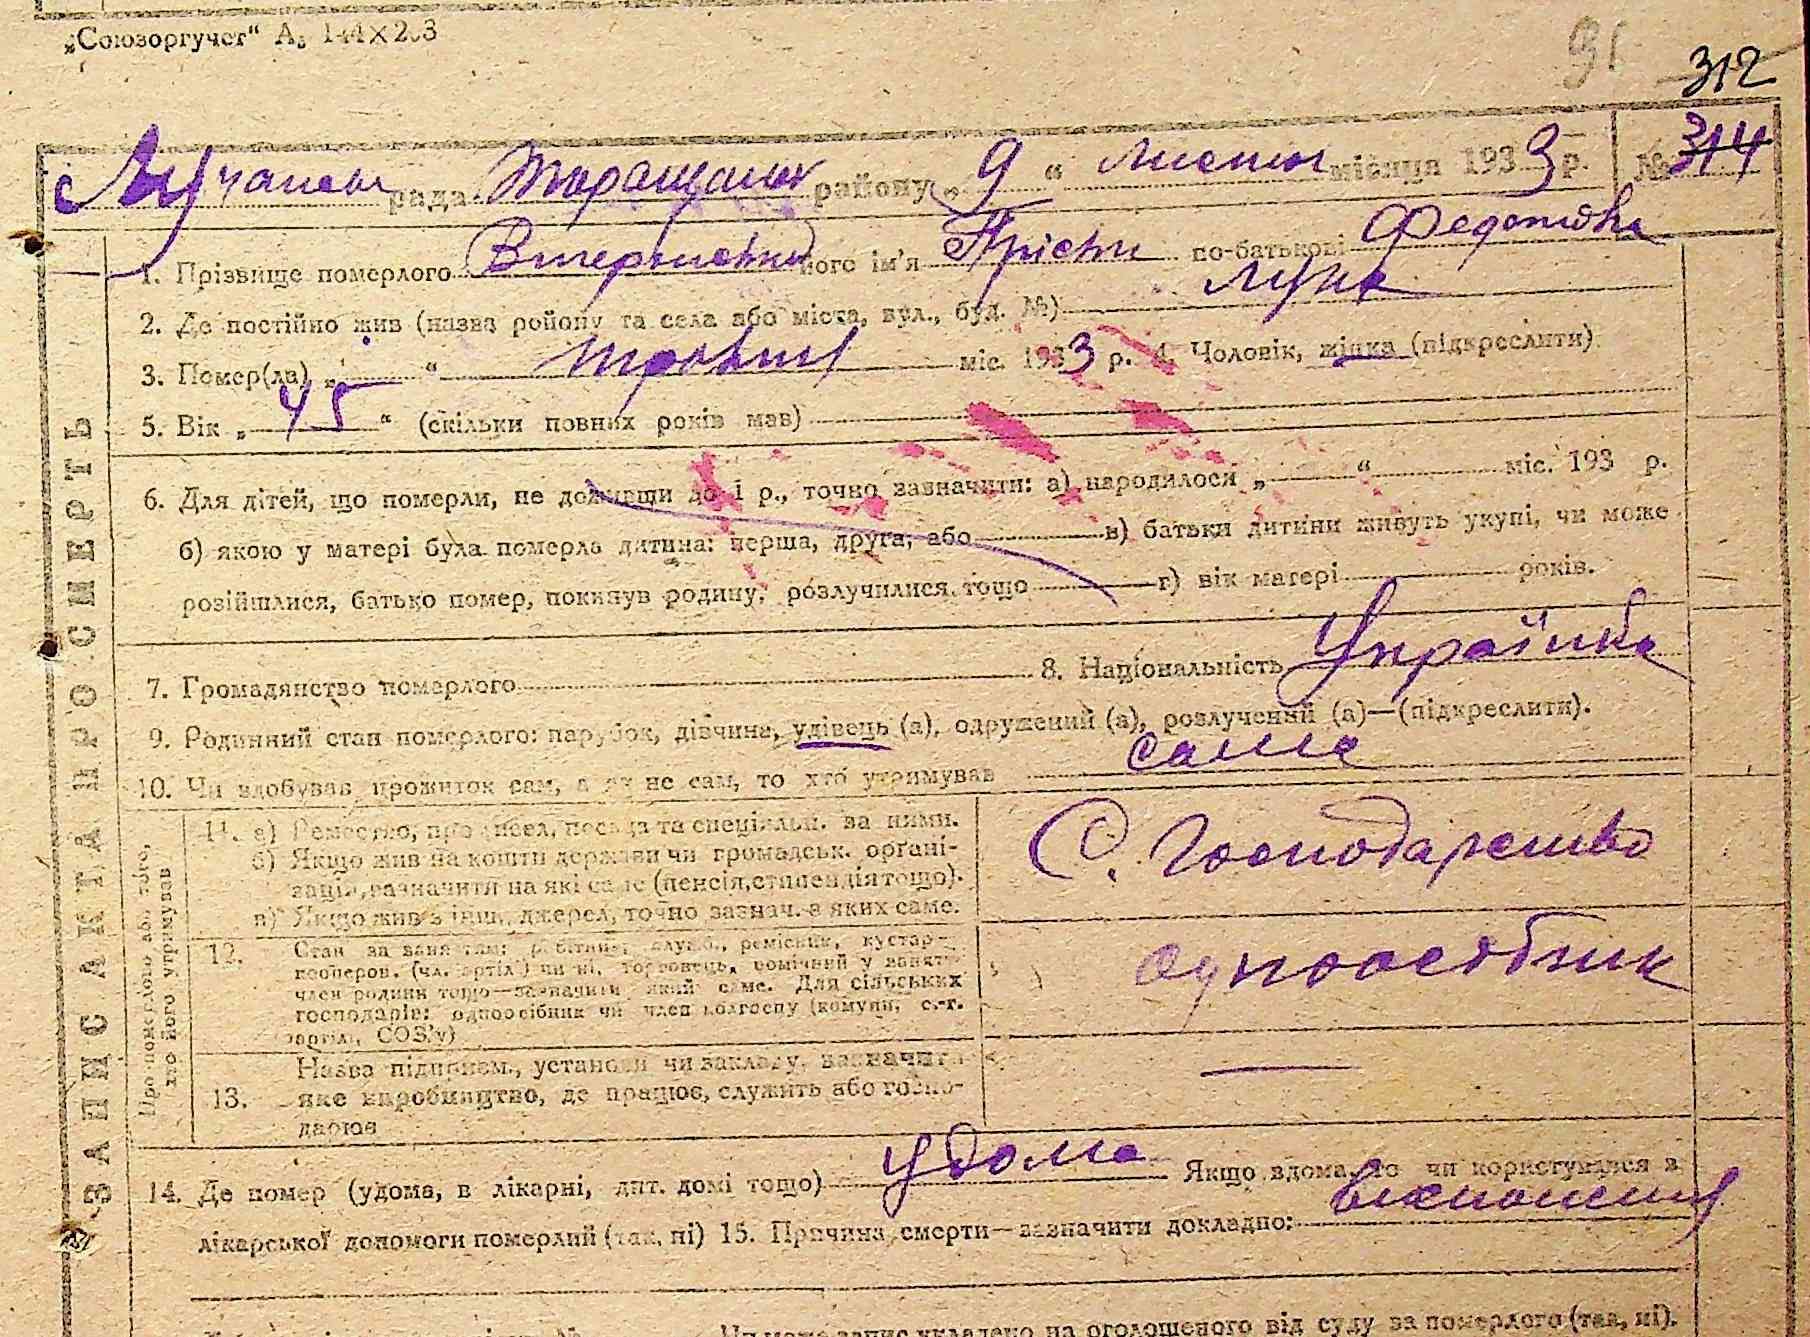 „Союзоргучет“ А₅ 144×203
91
312
Лучанська рада Таращанськ району „9“ листоп місяця 1933 р. № 314
1. Прізвище померлого його ім'я Прісьти по-батькові Федотівна
2. Де постійно жив (назва району та села або міста, вул., буд. №) Лука
3. Помер(ла) „ “ травня міс. 1933 р. 4. Чоловік, жінка (підкреслити)
5. Вік „45“ (скільки повних років мав)
6. Для дітей, що померли, не доживши до 1 р., точно зазначити: а) народилося „ “ міс. 193 р.
б) якою у матері була померла дитина: перша, друга, або в) батьки дитини живуть укупі, чи може
розійшлися, батько помер, покинув родину, розлучилися тощо г) вік матері років.
7. Громадянство померлого 8. Національність Українка
9. Родинний стан померлого: парубок, дівчина, удівець (а), одружений (а), розлучений (а)—(підкреслити).
10. Чи здобував прожиток сам, а як не сам, то хто утримував сама
ЗАПИС АКТА ПРО СМЕРТЬ
Про померлого або того, хто його утримував
11. а) Ремество, промисел, посада та спеціяльн. за ними.
б) Якщо жив на кошти держави чи громадськ. органі-
зацій, зазначити на які саме (пенсія, стипендія тощо).
в) Якщо жив з інш. джерел, точно зазнач. з яких саме.
С. Господарство
12. Стан за заняттям: робітник, служб., ремісник, кустар-
кооперов. (чл. артілі) чи ні, торговець, помічний у занятт.
член родини тощо—зазначити який саме. Для сільських
господарів: одноосібник чи член колгоспу (комуни, с.-г.
артілі, СОЗ'у)
одноосібник
13. Назва підприєм., установи чи закладу, зазначити
яке виробництво, де працює, служить або госпо-
дарює
14. Де помер (удома, в лікарні, дит. домі тощо) удома Якщо вдома, то чи користувався з
лікарської допомоги померлий (так, ні) 15. Причина смерти—зазначити докладно: виснаження
Чи може запис укладено на оголошеного від суду за померлого (так, ні).